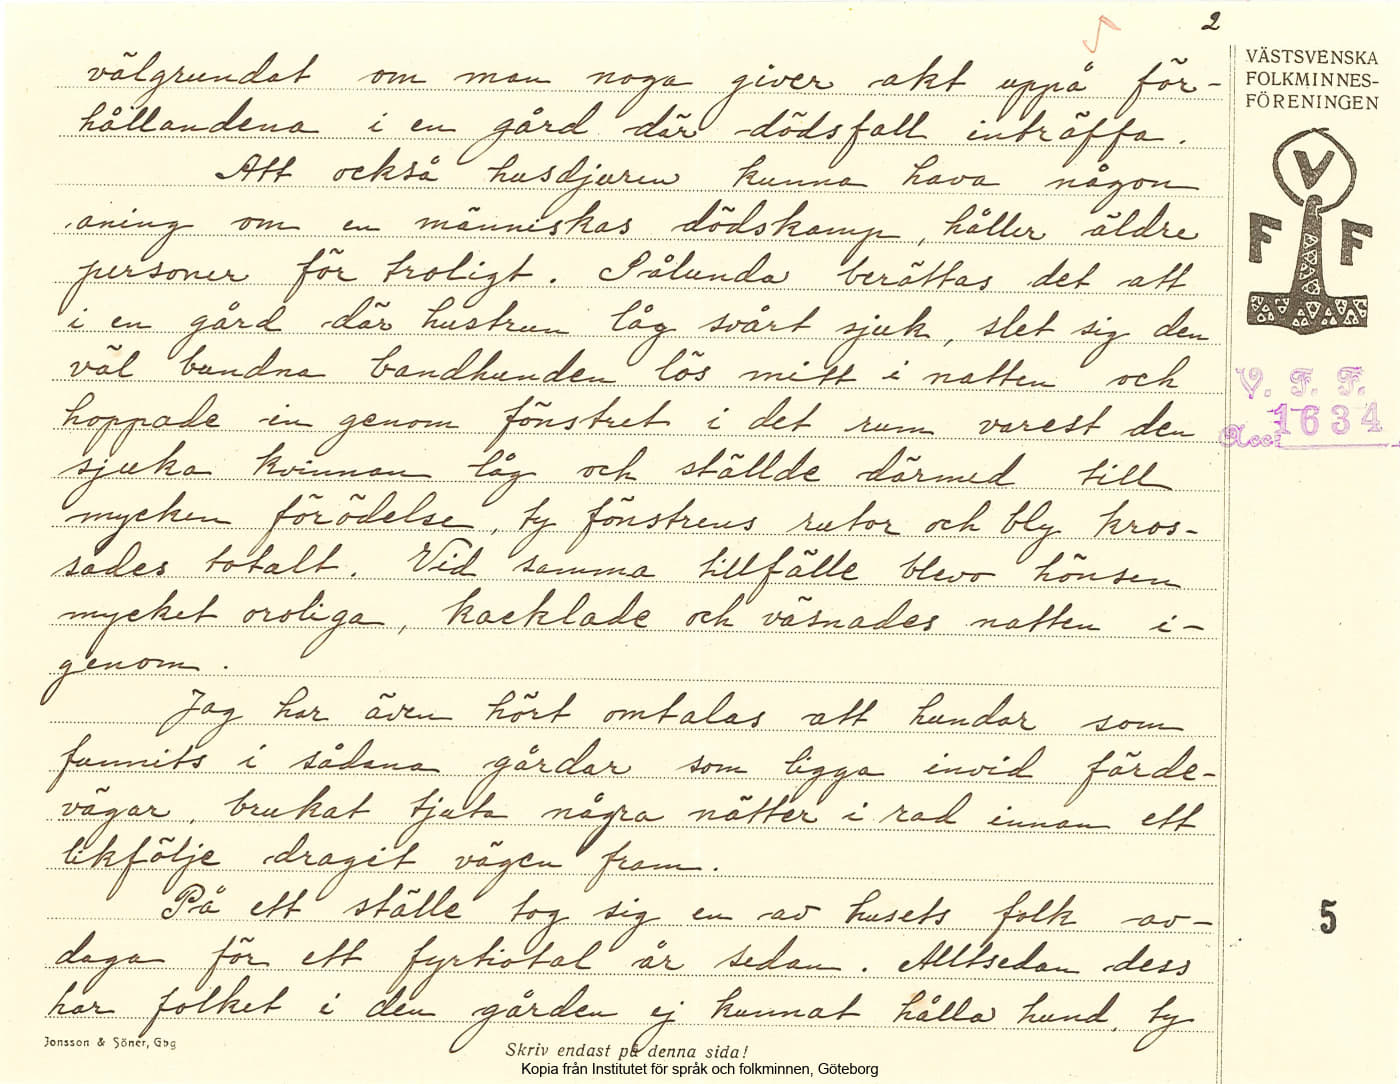 2
välgrundat om man noga giver akt uppå för-
hållandena i en gård där dödsfall inträffa.
Att också husdjuren kunna hava någon
aning om en människas dödskamp, håller äldre
personer för troligt. Sålunda berättas det att
i en gård där hustrun låg svårt sjuk, slet sig den
väl bundna bandhunden lös mitt i natten och
hoppade in genom fönstret i det rum varest den
sjuka kvinnan låg och ställde därmed till
mycken förödelse, ty fönstrens rutor och bly kros-
sades totalt. Vid samma tillfälle blevo hönsen
mycket oroliga, kacklade och väsnades natten i-
genom.
Jag har även hört omtalas att hundar som
funnits i sådana gårdar som ligga invid färde-
vägar, brukat tjuta några nätter i rad innan ett
likfölje dragit vägen fram.
På ett ställe tog sig en av husets folk av-
daga för ett fyrtiotal år sedan. Alltsedan dess
har folket i den gården ej kunnat hålla hund, ty
Jonsson & Söner, Gbg
Skriv endast på denna sida!
Kopia från Institutet för språk och folkminnen, Göteborg
VÄSTSVENSKA
FOLKMINNES-
FÖRENINGEN
V
F F
V. F. F.
Acc: 1634
5